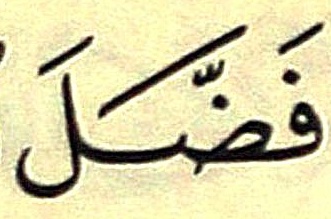 فَضَّلَ